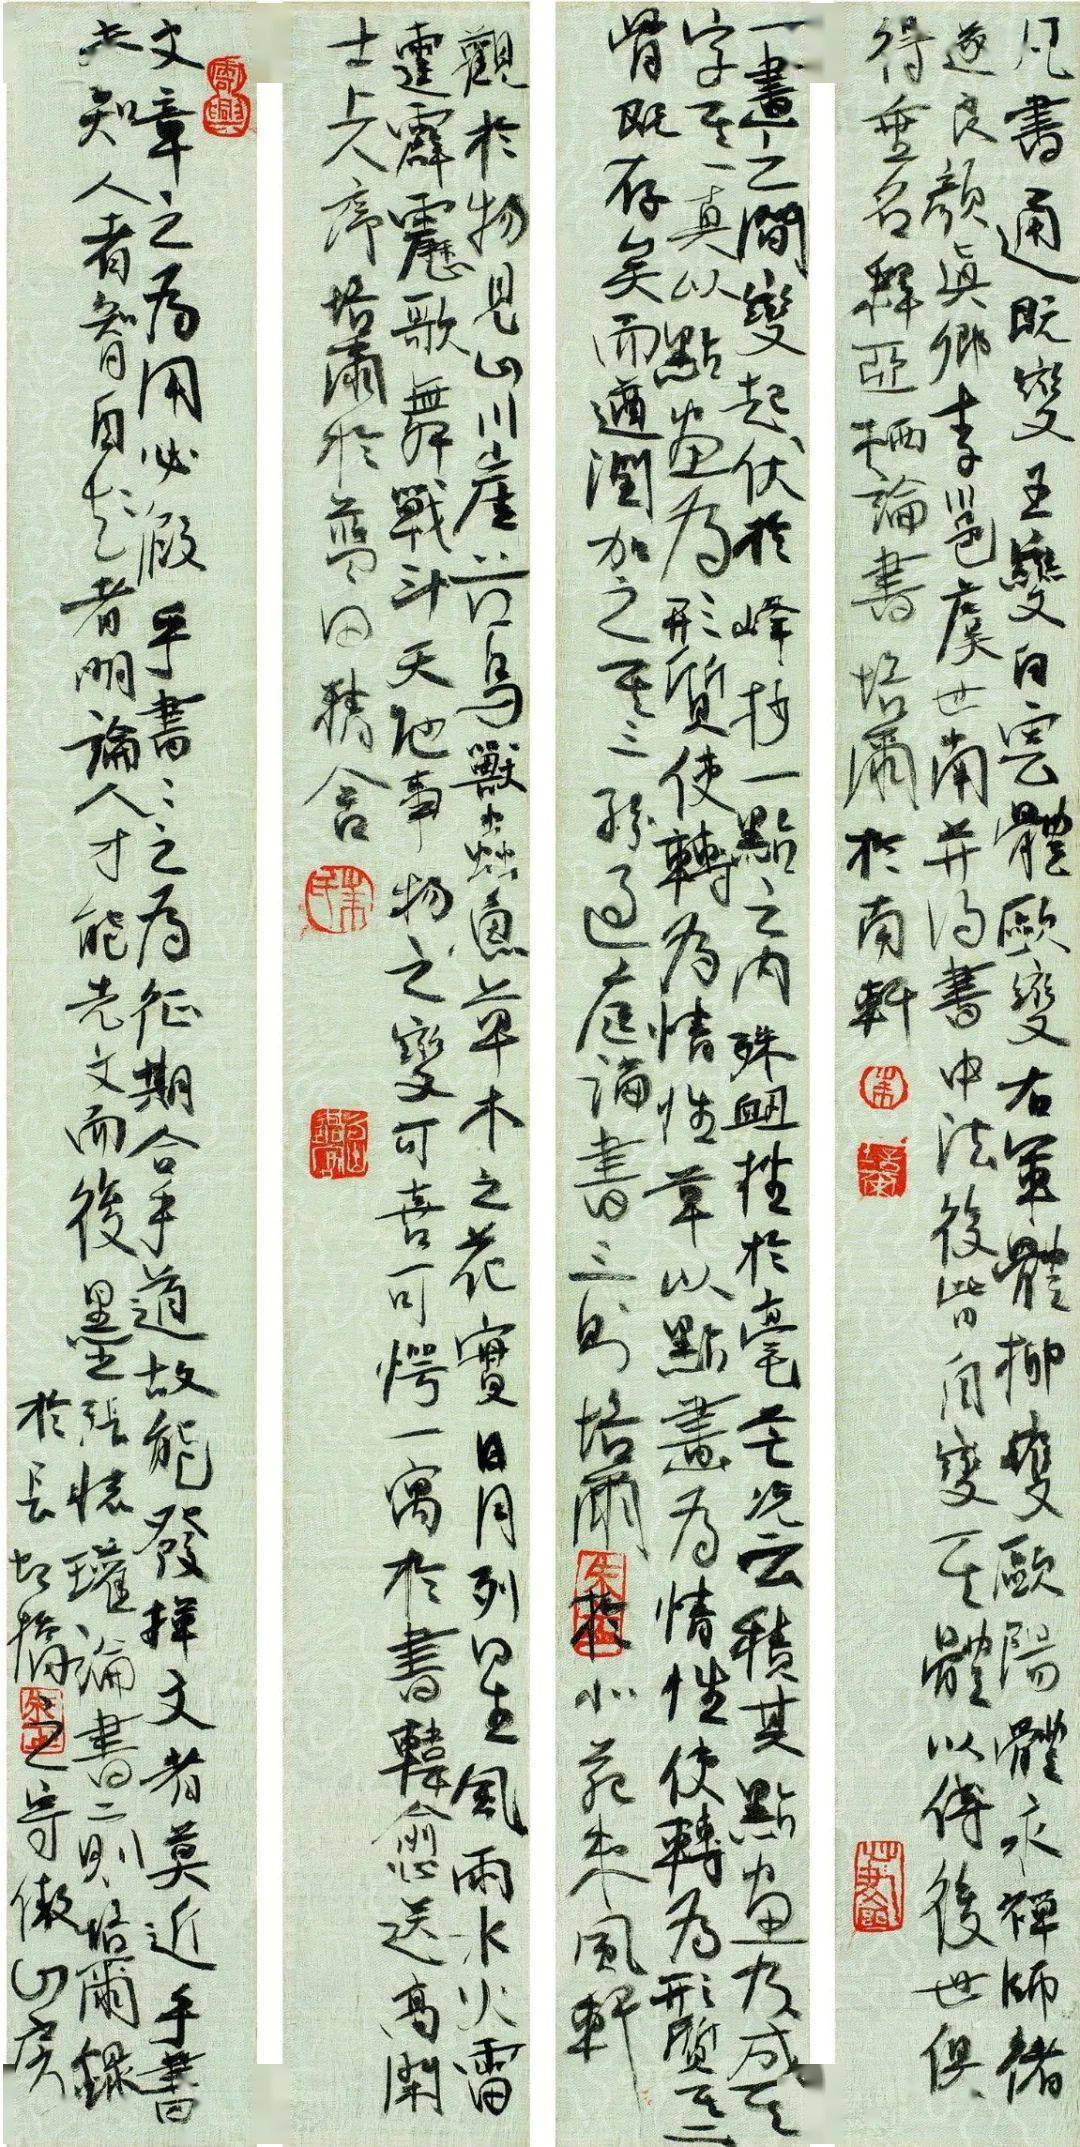 凡書通即變王變白雲體歐變右軍體柳變歐陽體永禪師褚
遂良顏真卿李邕虞世南并得書中法後皆自變其體以傳後世俱
得垂名釋亞栖論書 培爾於南軒
一畫之間變起伏於峰杪一點之內殊衄挫於毫芒況云積其點畫乃成其
字其一真以點畫為形質使轉為情性草以點畫為情性使轉為形質其二
骨既存矣而遒潤加之其三孫過庭論書三則 培爾於小莊東風軒
觀於物見山川崖谷鳥獸蟲魚草木之花實日月列星風雨水火雷
霆霹靂歌舞戰斗天地事物之變可喜可愕一寓於書韓愈送高閑
士上人序 培爾於夢田精舍
文章之為用必假乎書書之為征期合乎道故能發揮文者莫近乎書
夫知人者智自知者明論人才能先文而後墨張懷瓘論書二則培爾錄
於長虹橋之守傲山房